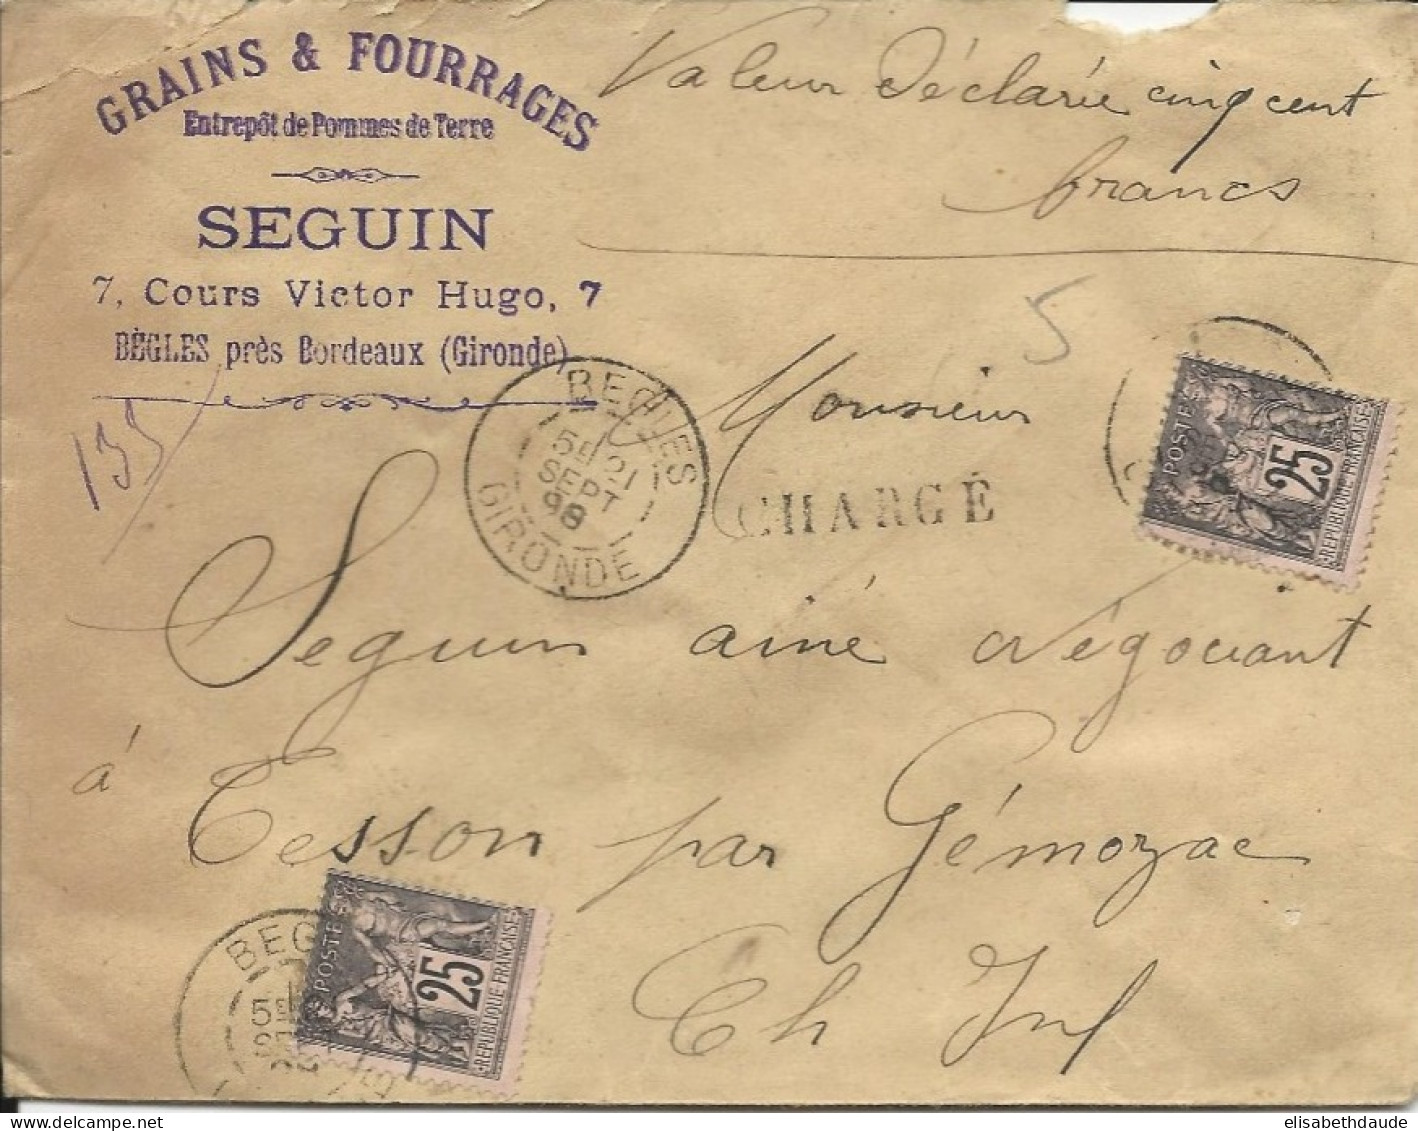 GRAINS & FOURRAGES
Entrepôt de Pommes de Terre
SEGUIN
7, Cours Victor Hugo, 7
BÈGLES près Bordeaux (Gironde)
Valeur Déclarée cinq cent
francs
5
133
BEGLES
5E 21
SEPT
98
GIRONDE
Monsieur
CHARGÉ
POSTES
25
REPUBLIQUE FRANÇAISE
Seguin ainé Négociant
à Tesson par Gémozac
Ch Inf
BEG
POSTES
25
REPUBLIQUE FRANÇAISE
elisabethdaude